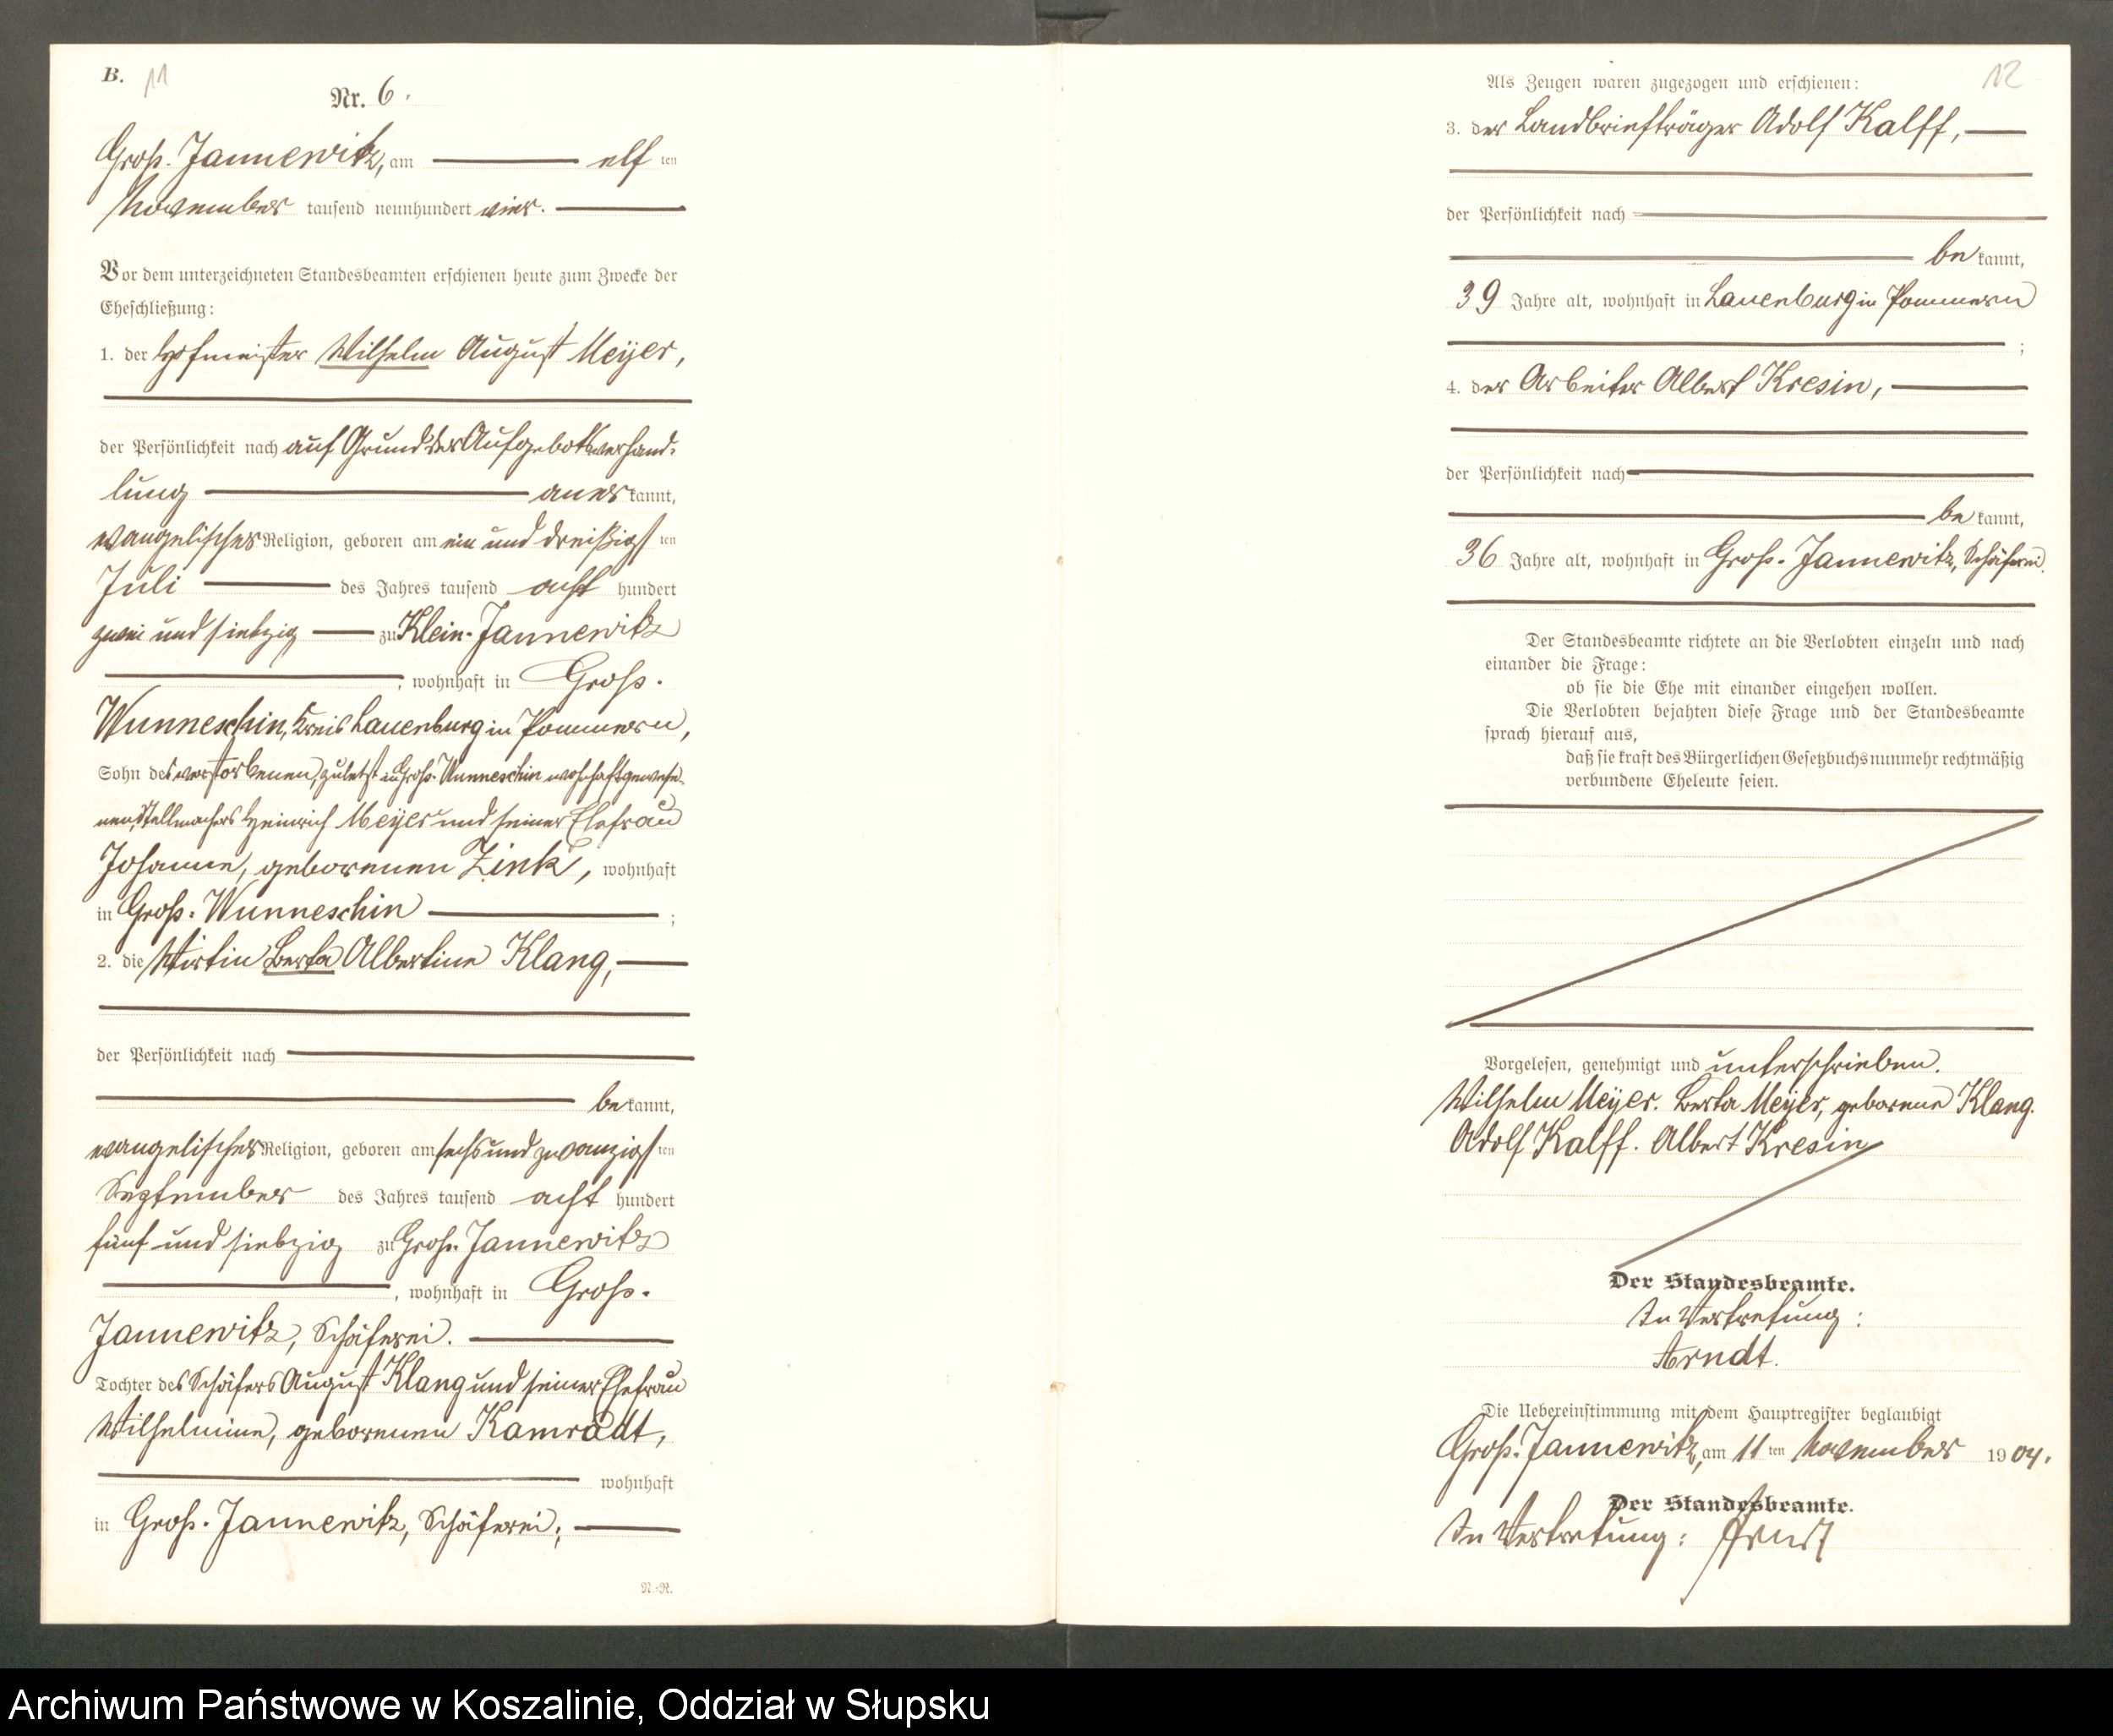 B. 11
Nr. 6.
Groß-Jannewitz, am elf ten
November tausend neunhundert vier.
Vor dem unterzeichneten Standesbeamten erschienen heute zum Zwecke der
Eheschließung:
1. der Hofmeister Wilhelm August Meyer,
der Persönlichkeit nach auf Grund der Aufgebotsverhand-
lung anerkannt,
evangelischer Religion, geboren am ein und dreißigsten
Juli des Jahres tausend acht hundert
zwei und siebzig zu Klein-Jannewitz
, wohnhaft in Groß-
Wunneschin, Kreis Lauenburg in Pommern,
Sohn des verstorbenen, zuletzt in Groß-Wunneschin wohnhaft gewese-
nen, Stellmachers Heinrich Meyer und seiner Ehefrau
Johanne, geborenen Zink, wohnhaft
in Groß-Wunneschin ;
2. die Wirtin Berta Albertine Klang,
der Persönlichkeit nach
bekannt,
evangelischer Religion, geboren am sechs und zwanzigsten
September des Jahres tausend acht hundert
fünf und siebzig zu Groß-Jannewitz
, wohnhaft in Groß-
Jannewitz, Schäferei.
Tochter des Schäfers August Klang und seiner Ehefrau
Wilhelmine, geborenen Kamradt,
wohnhaft
in Groß-Jannewitz, Schäferei;
N.-R.
12
Als Zeugen waren zugezogen und erschienen:
3. der Landbriefträger Adolf Kalff,
der Persönlichkeit nach
bekannt,
39 Jahre alt, wohnhaft in Lauenburg in Pommern
;
4. der Arbeiter Albert Kresin,
der Persönlichkeit nach
bekannt,
36 Jahre alt, wohnhaft in Groß-Jannewitz, Schäferei.
Der Standesbeamte richtete an die Verlobten einzeln und nach
einander die Frage:
ob sie die Ehe mit einander eingehen wollen.
Die Verlobten bejahten diese Frage und der Standesbeamte
sprach hierauf aus,
daß sie kraft des Bürgerlichen Gesetzbuchs nunmehr rechtmäßig
verbundene Eheleute seien.
Vorgelesen, genehmigt und unterschrieben.
Wilhelm Meyer. Berta Meyer, geborene Klang.
Adolf Kalff. Albert Kresin
Der Standesbeamte.
In Vertretung:
Arndt.
Die Uebereinstimmung mit dem Hauptregister beglaubigt
Groß-Jannewitz, am 11 ten November 1904.
Der Standesbeamte.
In Vertretung: Arndt
Archiwum Państwowe w Koszalinie, Oddział w Słupsku